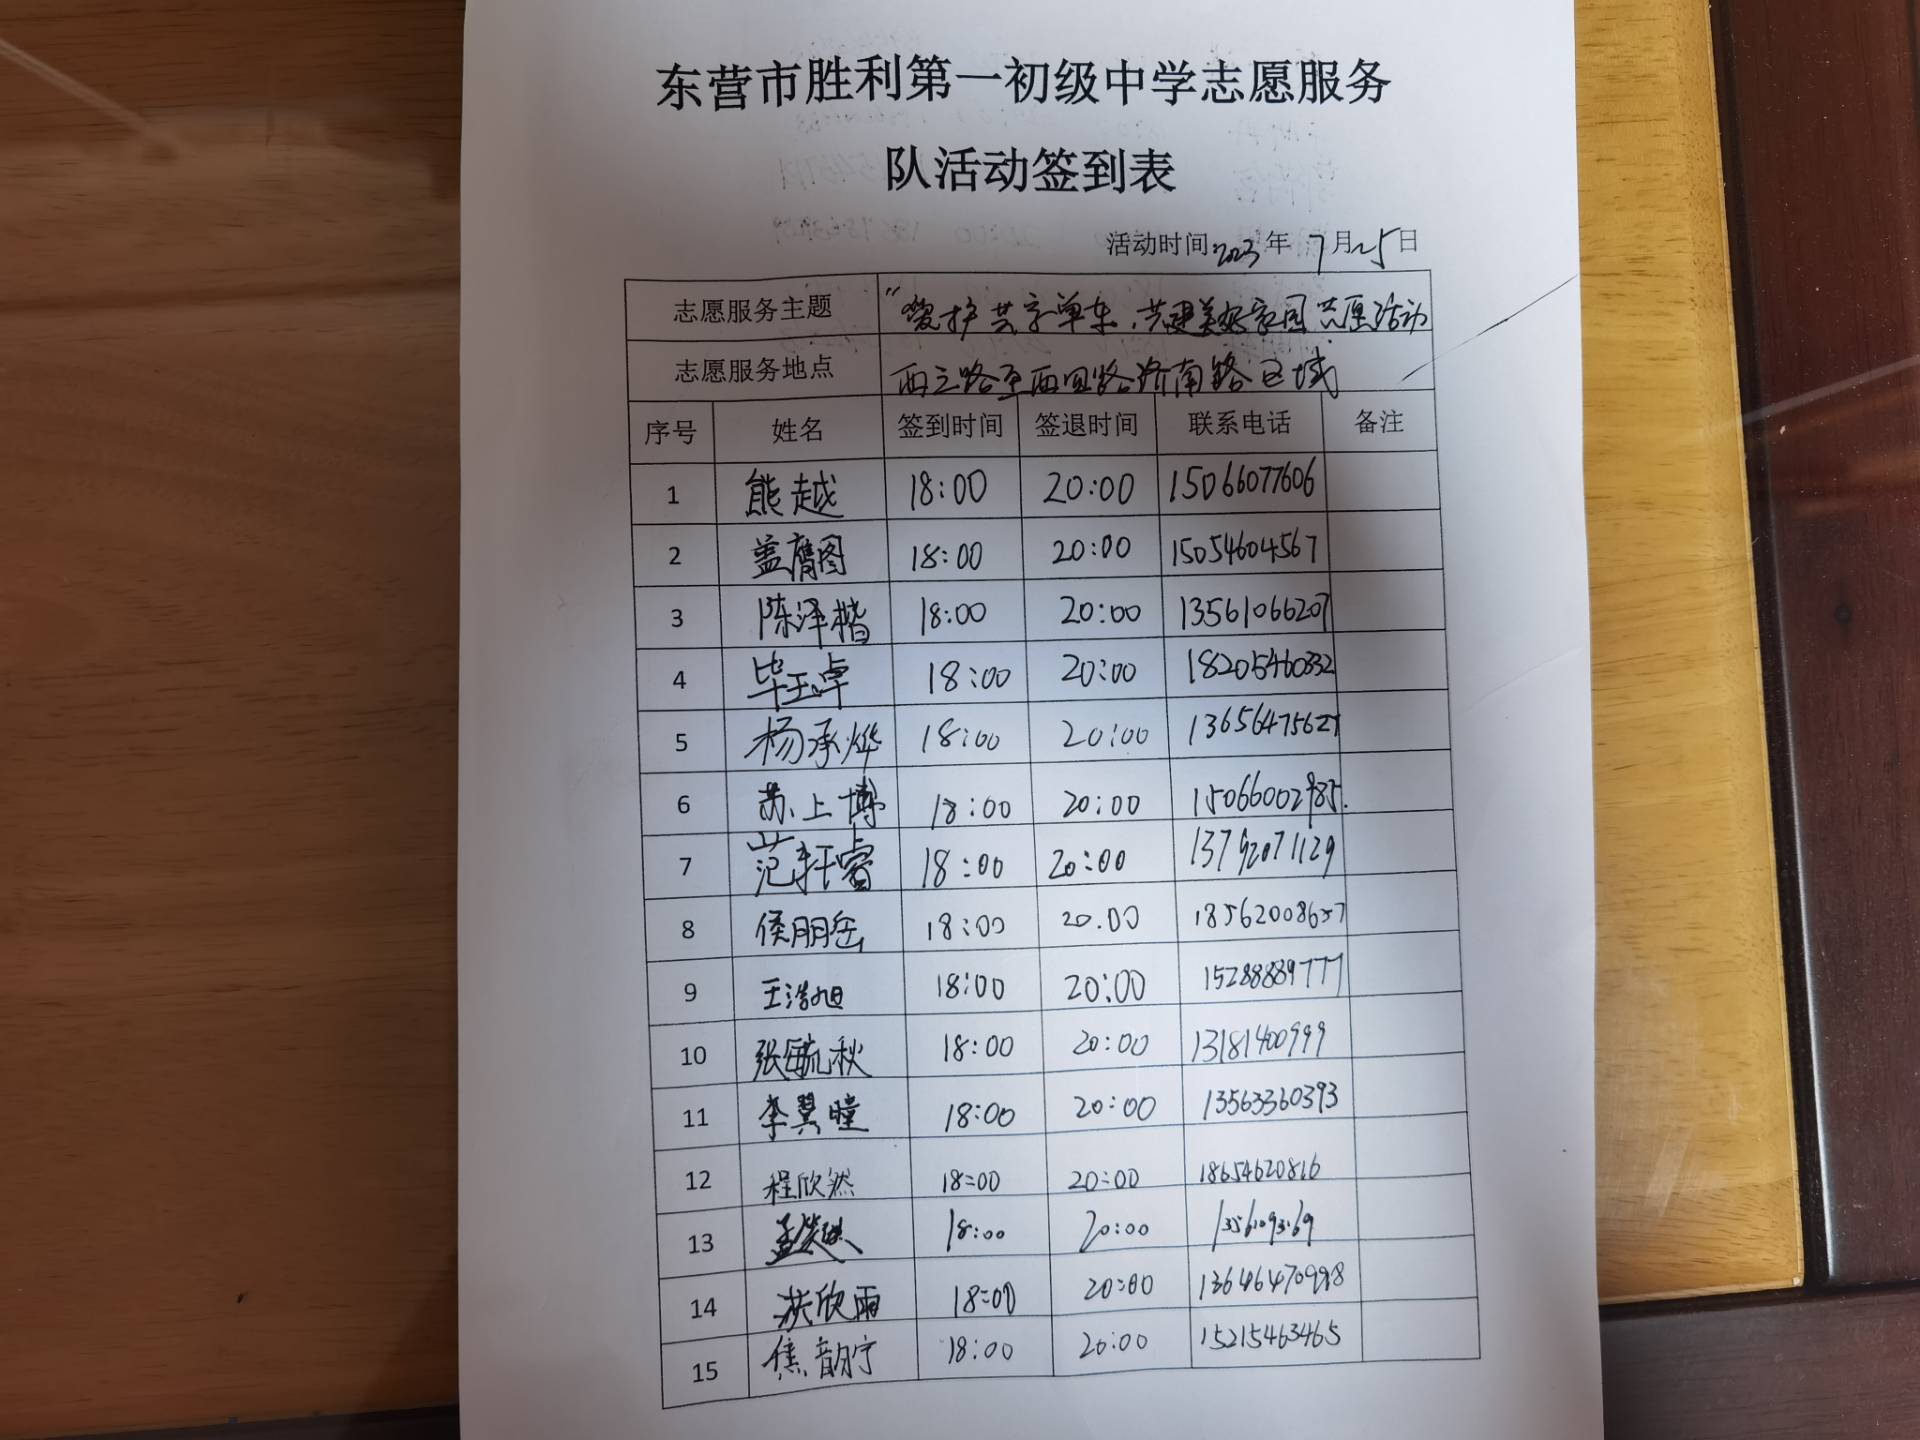 东营市胜利第一初级中学志愿服务
队活动签到表
活动时间2023年7月25日
志愿服务主题 "爱护共享单车,共建美好家园志愿活动
志愿服务地点 西三路至西四路济南路区域
序号 姓名 签到时间 签退时间 联系电话 备注
1 熊越 18:00 20:00 15066077606
2 盖膺图 18:00 20:00 15054604567
3 陈泽楷 18:00 20:00 13561066207
4 毕玉卓 18:00 20:00 18205460332
5 杨承烨 18:00 20:00 13656475627
6 苏上博 18:00 20:00 15066002985.
7 范轩睿 18:00 20:00 13792071129
8 侯朋岳 18:00 20.00 18562008657
9 王浩旭 18:00 20:00 15288889777
10 张毓秋 18:00 20:00 13181400999
11 李翼瞳 18:00 20:00 13563360393
12 程欣然 18:00 20:00 18654620816
13 18:00 20:00
14 洪欣雨 18:00 20:00
15 焦韵宁 18:00 20:00 15215463465